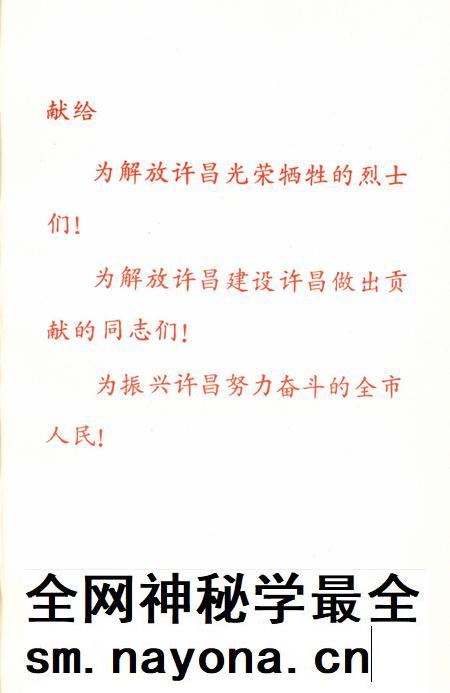 献给
为解放许昌光荣牺牲的烈士
们!
为解放许昌建设许昌做出贡
献的同志们!
为振兴许昌努力奋斗的全市
人民!
全网神秘学最全
sm.nayona.cn